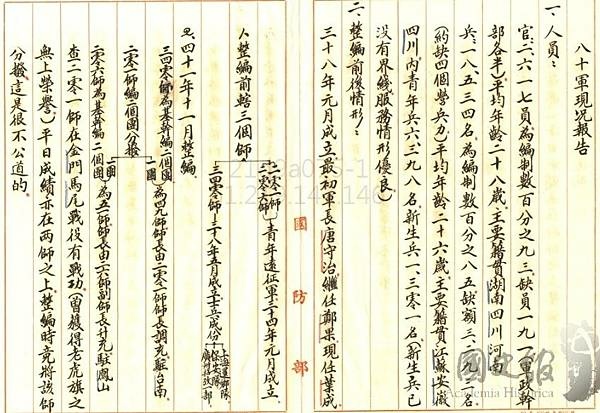 八十軍現況報告
一、人員：
官：二六一七員為編制數百分之九三、缺員一九一(軍政幹
部各半)平均年齡二十八歲、主要籍貫湖南四川河南
兵：一八五三四名、為編制數百分之八五缺額三、一九三名、
(約缺四個營兵力)平均年齡二十六歲、主要籍貫江蘇安徽
四川內青年兵六、三九八名、新生兵一、三零一名(新生兵已
沒有界綫服務情形優良)
二、整編前後情形：
三十八年元月成立最初軍長唐守治繼任鄭果現任葉成
1.整編前轄三個師
二零一師
二零六師
青年遠征軍三十四年元月成立、
三四零師—三十八年五月成立士兵成份
上海進部隊
保安隊
廣州社政一部
2.四十一年十一月整編
三四零師為基幹編二個團
二零一師編一個團分撥
一團
為四九師師長由二零一師師長調充駐台南
二零六師為基幹編二個團
一團
為五一師師長由二六師副師長升充駐鳳山
查二零一師在金門馬尾戰役有戰功(曾獲得老虎旗之
無上榮譽)平日成績亦在兩師之上整編時竟將該師
分撥這是很不公道的、
國防部
2129a015-1
國史館
Academia Historica